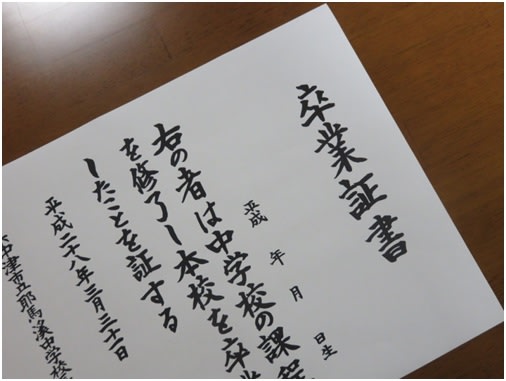 卒業証書
平成　年　月　日生
右の者は中学校の課程
を修了し本校を卒業
したことを証する
平成二十八年三月三十一日
中津市立耶馬溪中学校